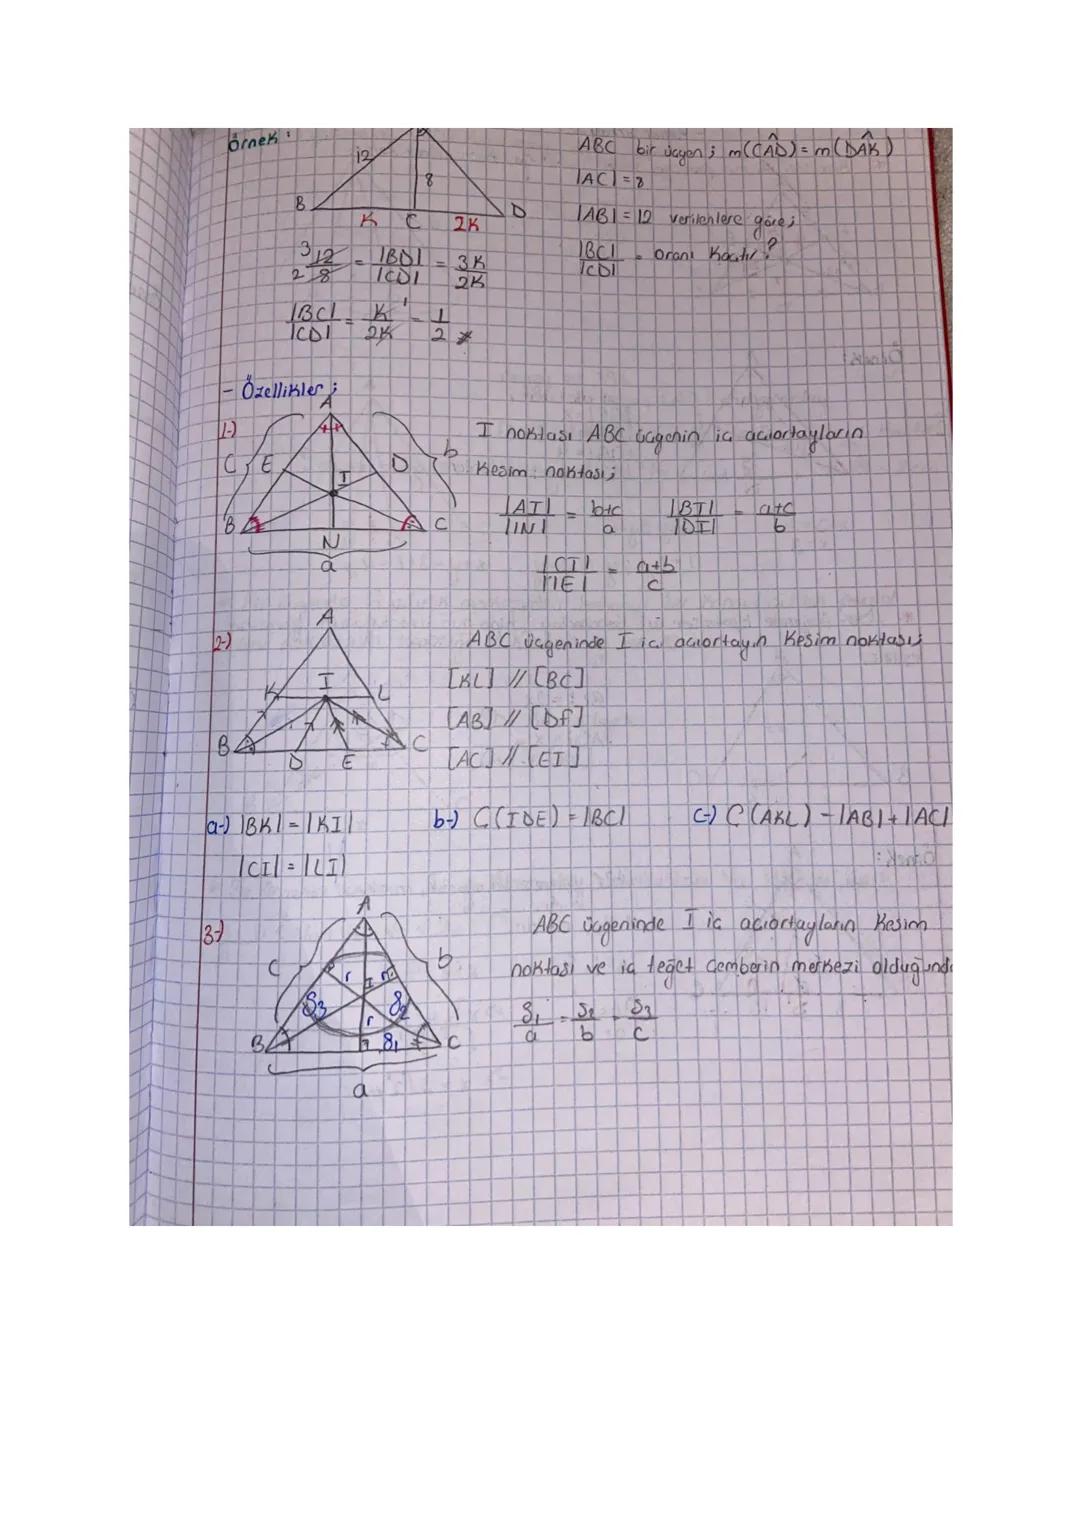 Örnek:
12
8
B
K
C
2K
D
ABC bir üçgen; m(CÂD) = m(DÂK)
|AC| = 8
|AB| = 12 verilenlere göre;
|BC| / |CD| = oranı kaçtır?
3 12 / 2 8 = |BD| / |CD| = 3K / 2K
|BC| / |CD| = K / 2K = 1 / 2
- Özellikler;
1-)
A
C
E
D
b
I
B
C
N
a
I noktası ABC üçgenin iç açıortayların
kesim noktası;
|AI| / |IN| = b+c / a
|BI| / |DI| = a+c / b
|CI| / |IE| = a+b / c
2-)
A
K
I
L
B
D
E
C
ABC üçgeninde I iç açıortayın kesim noktası;
[KL] // [BC]
[AB] // [Df]
[AC] // [EI]
a-) |BK| = |KI|
b-) Ç(IDE) = |BC|
c-) Ç(AKL) = |AB| + |AC|
|CI| = |LI|
3-)
A
c
b
r
r
I
S3
S2
r
B
S1
C
a
ABC üçgeninde I iç açıortayların kesim
noktası ve iç teğet çemberin merkezi olduğunda
S1 / a = S2 / b = S3 / c